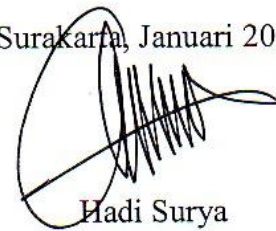 Surakarta, Januari 20
Hadi Surya